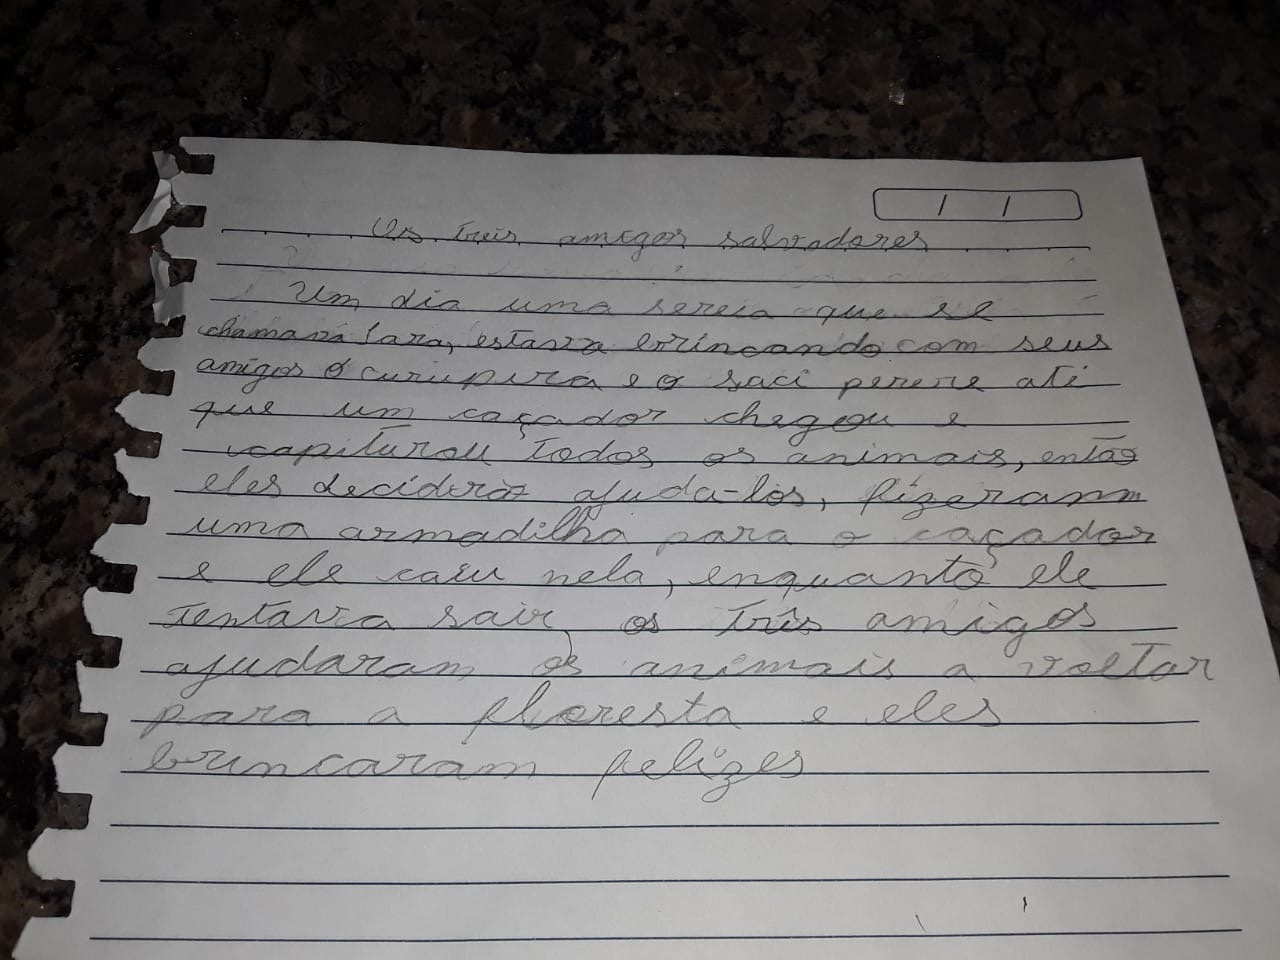 Os três amigos salvadores
Um dia uma sereia que se
chamava Iara, estava brincando com seus
amigos o curupira e o saci perere até
que um caçador chegou e
capiturou todos os animais, então
eles deciderão ajuda-los, fizeramm
uma armadilha para o caçador
e ele caiu nela, enquanto ele
tentava sair, os três amigos
ajudaram os animais a voltar
para a floresta e eles
brincaram felizes